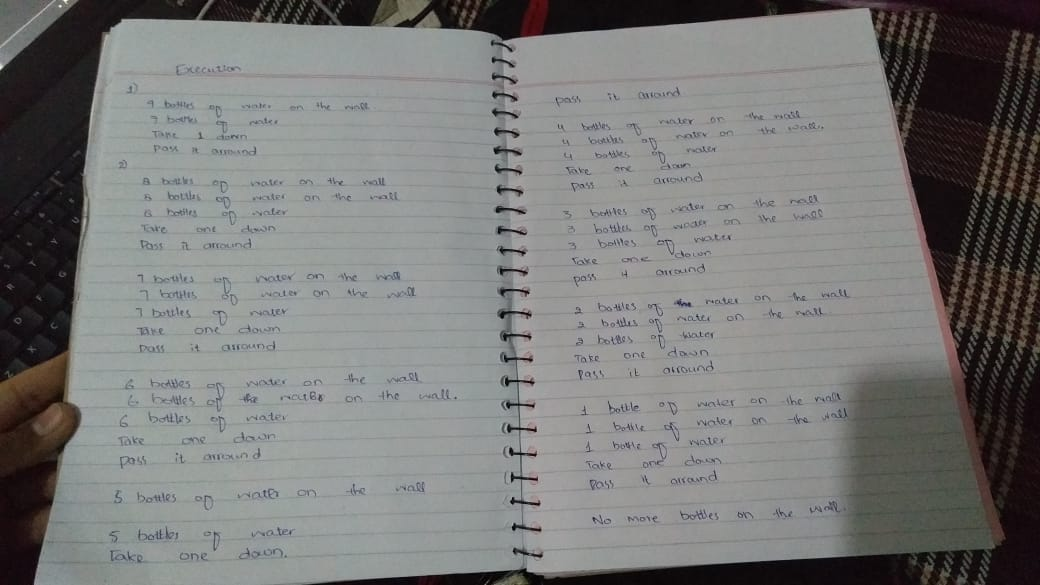 Execution
1)
9 bottles of water on the wall
9 bottles of water
Take 1 down
Pass it arround
2)
8 bottles of water on the wall
8 bottles of water on the wall
8 bottles of water
Take one down
Pass it arround
7 bottles of water on the wall
7 bottles of water on the wall
7 bottles of water
Take one down
Pass it arround
6 bottles of water on the wall
6 bottles of the water on the wall.
6 bottles of water
Take one down
pass it arround
5 bottles of water on the wall
5 bottles of water
Take one down.
pass it arround
4 bottles of water on the wall
4 bottles of water on the wall.
4 bottles of water
Take one down
pass it arround
3 bottles of water on the wall
3 bottles of water on the wall
3 bottles of water
Take one down
pass it arround
2 bottles of water on the wall
2 bottles of water on the wall
2 bottles of water
Take one down
Pass it arround
1 bottle of water on the wall
1 bottle of water on the wall
1 bottle of water
Take one down
Pass it arround
No more bottles on the wall.